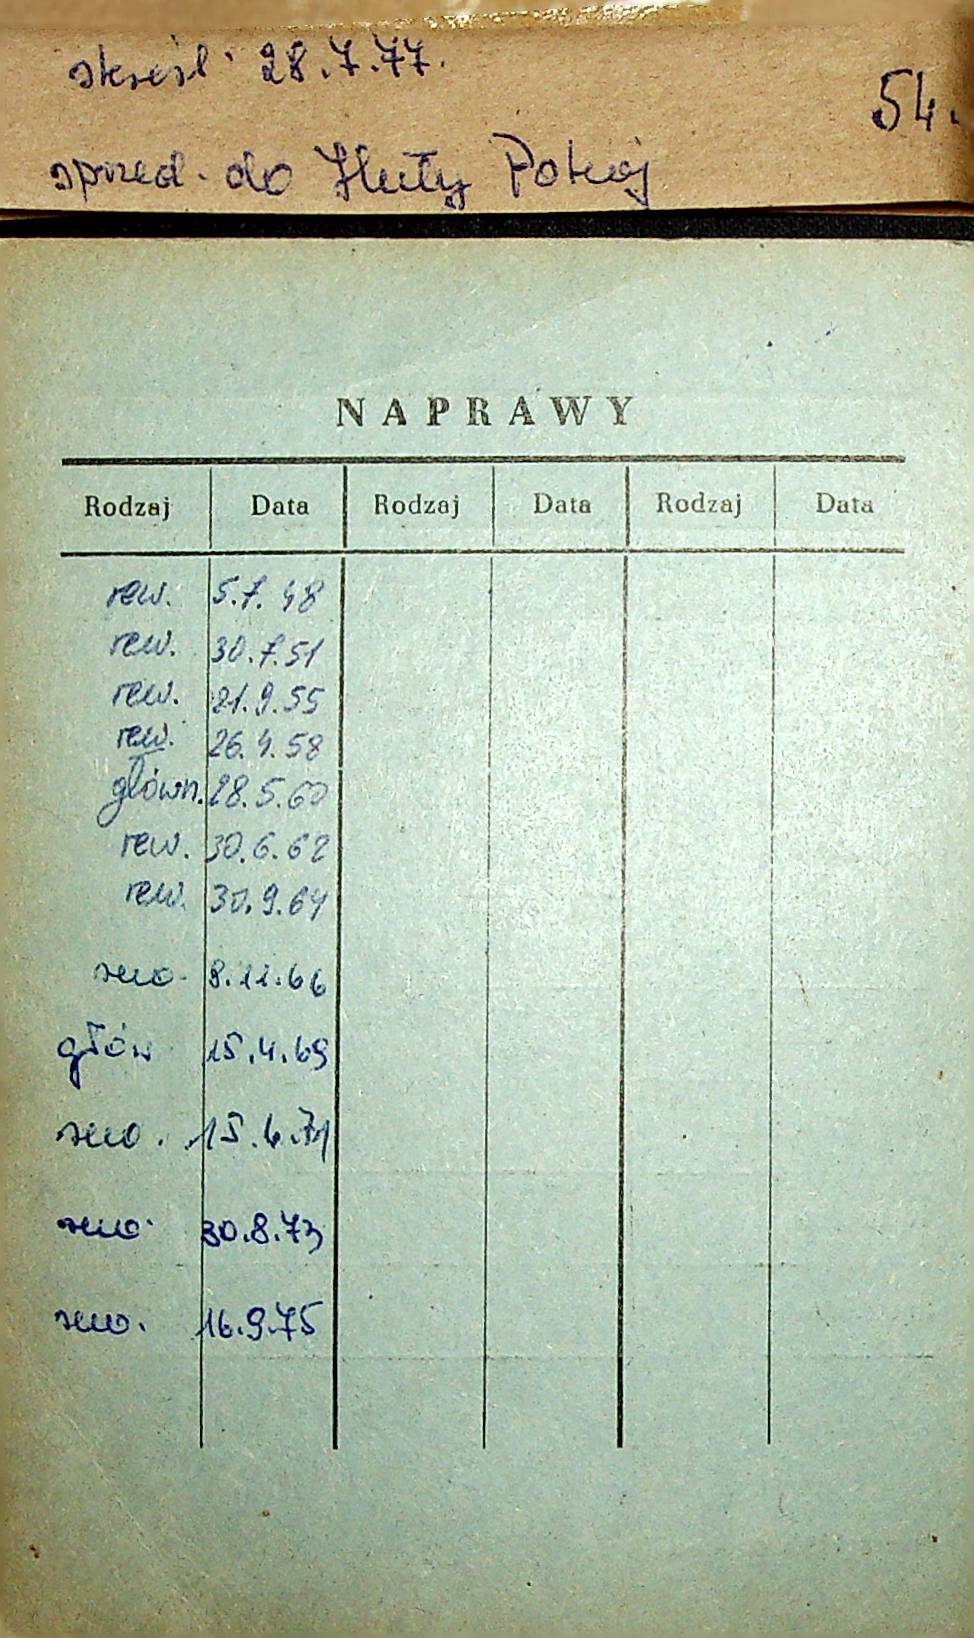 skreśl. 28.7.77.
54.
sprzed. do Huty Pokój
NAPRAWY
Rodzaj Data Rodzaj Data Rodzaj Data
rew. 5.7.48
rew. 30.7.51
rew. 21.9.55
rew. 26.4.58
główn. 28.5.60
rew. 30.6.62
rew. 30.9.64
rew. 8.11.66
głów 15.4.69
rew. 15.6.71
rew. 30.8.73
rew. 16.9.75